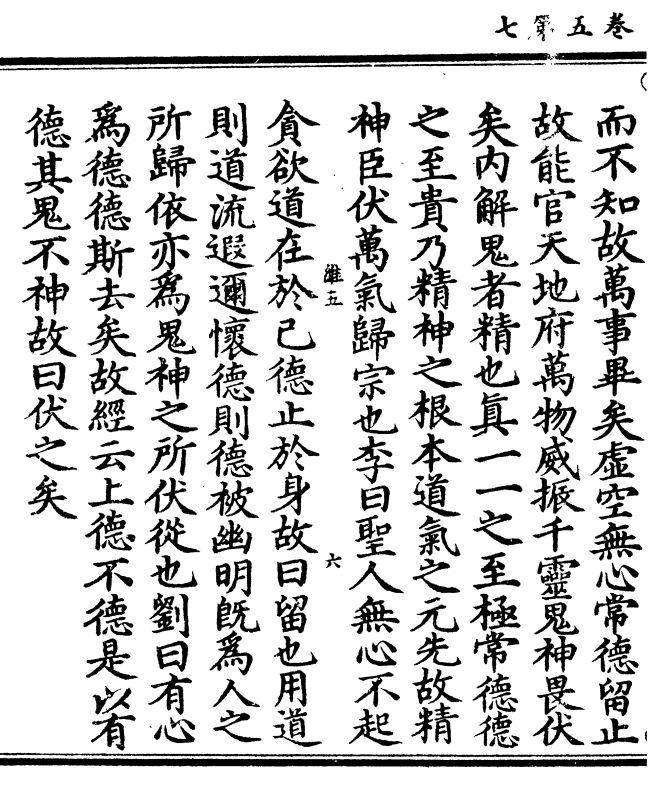 卷五第七
而不知故萬事畢矣虛空無心常德留止
故能官天地府萬物威振千靈鬼神畏伏
矣内解鬼者精也真一一之至極常德德
之至貴乃精神之根本道氣之元先故精
神臣伏萬氣歸宗也李曰聖人無心不起
維五
六
貪欲道在於己德止於身故曰留也用道
則道流遐邇懷德則德被幽明旣爲人之
所歸依亦爲鬼神之所伏從也劉曰有心
爲德德斯去矣故經云上德不德是以有
德其鬼不神故曰伏之矣